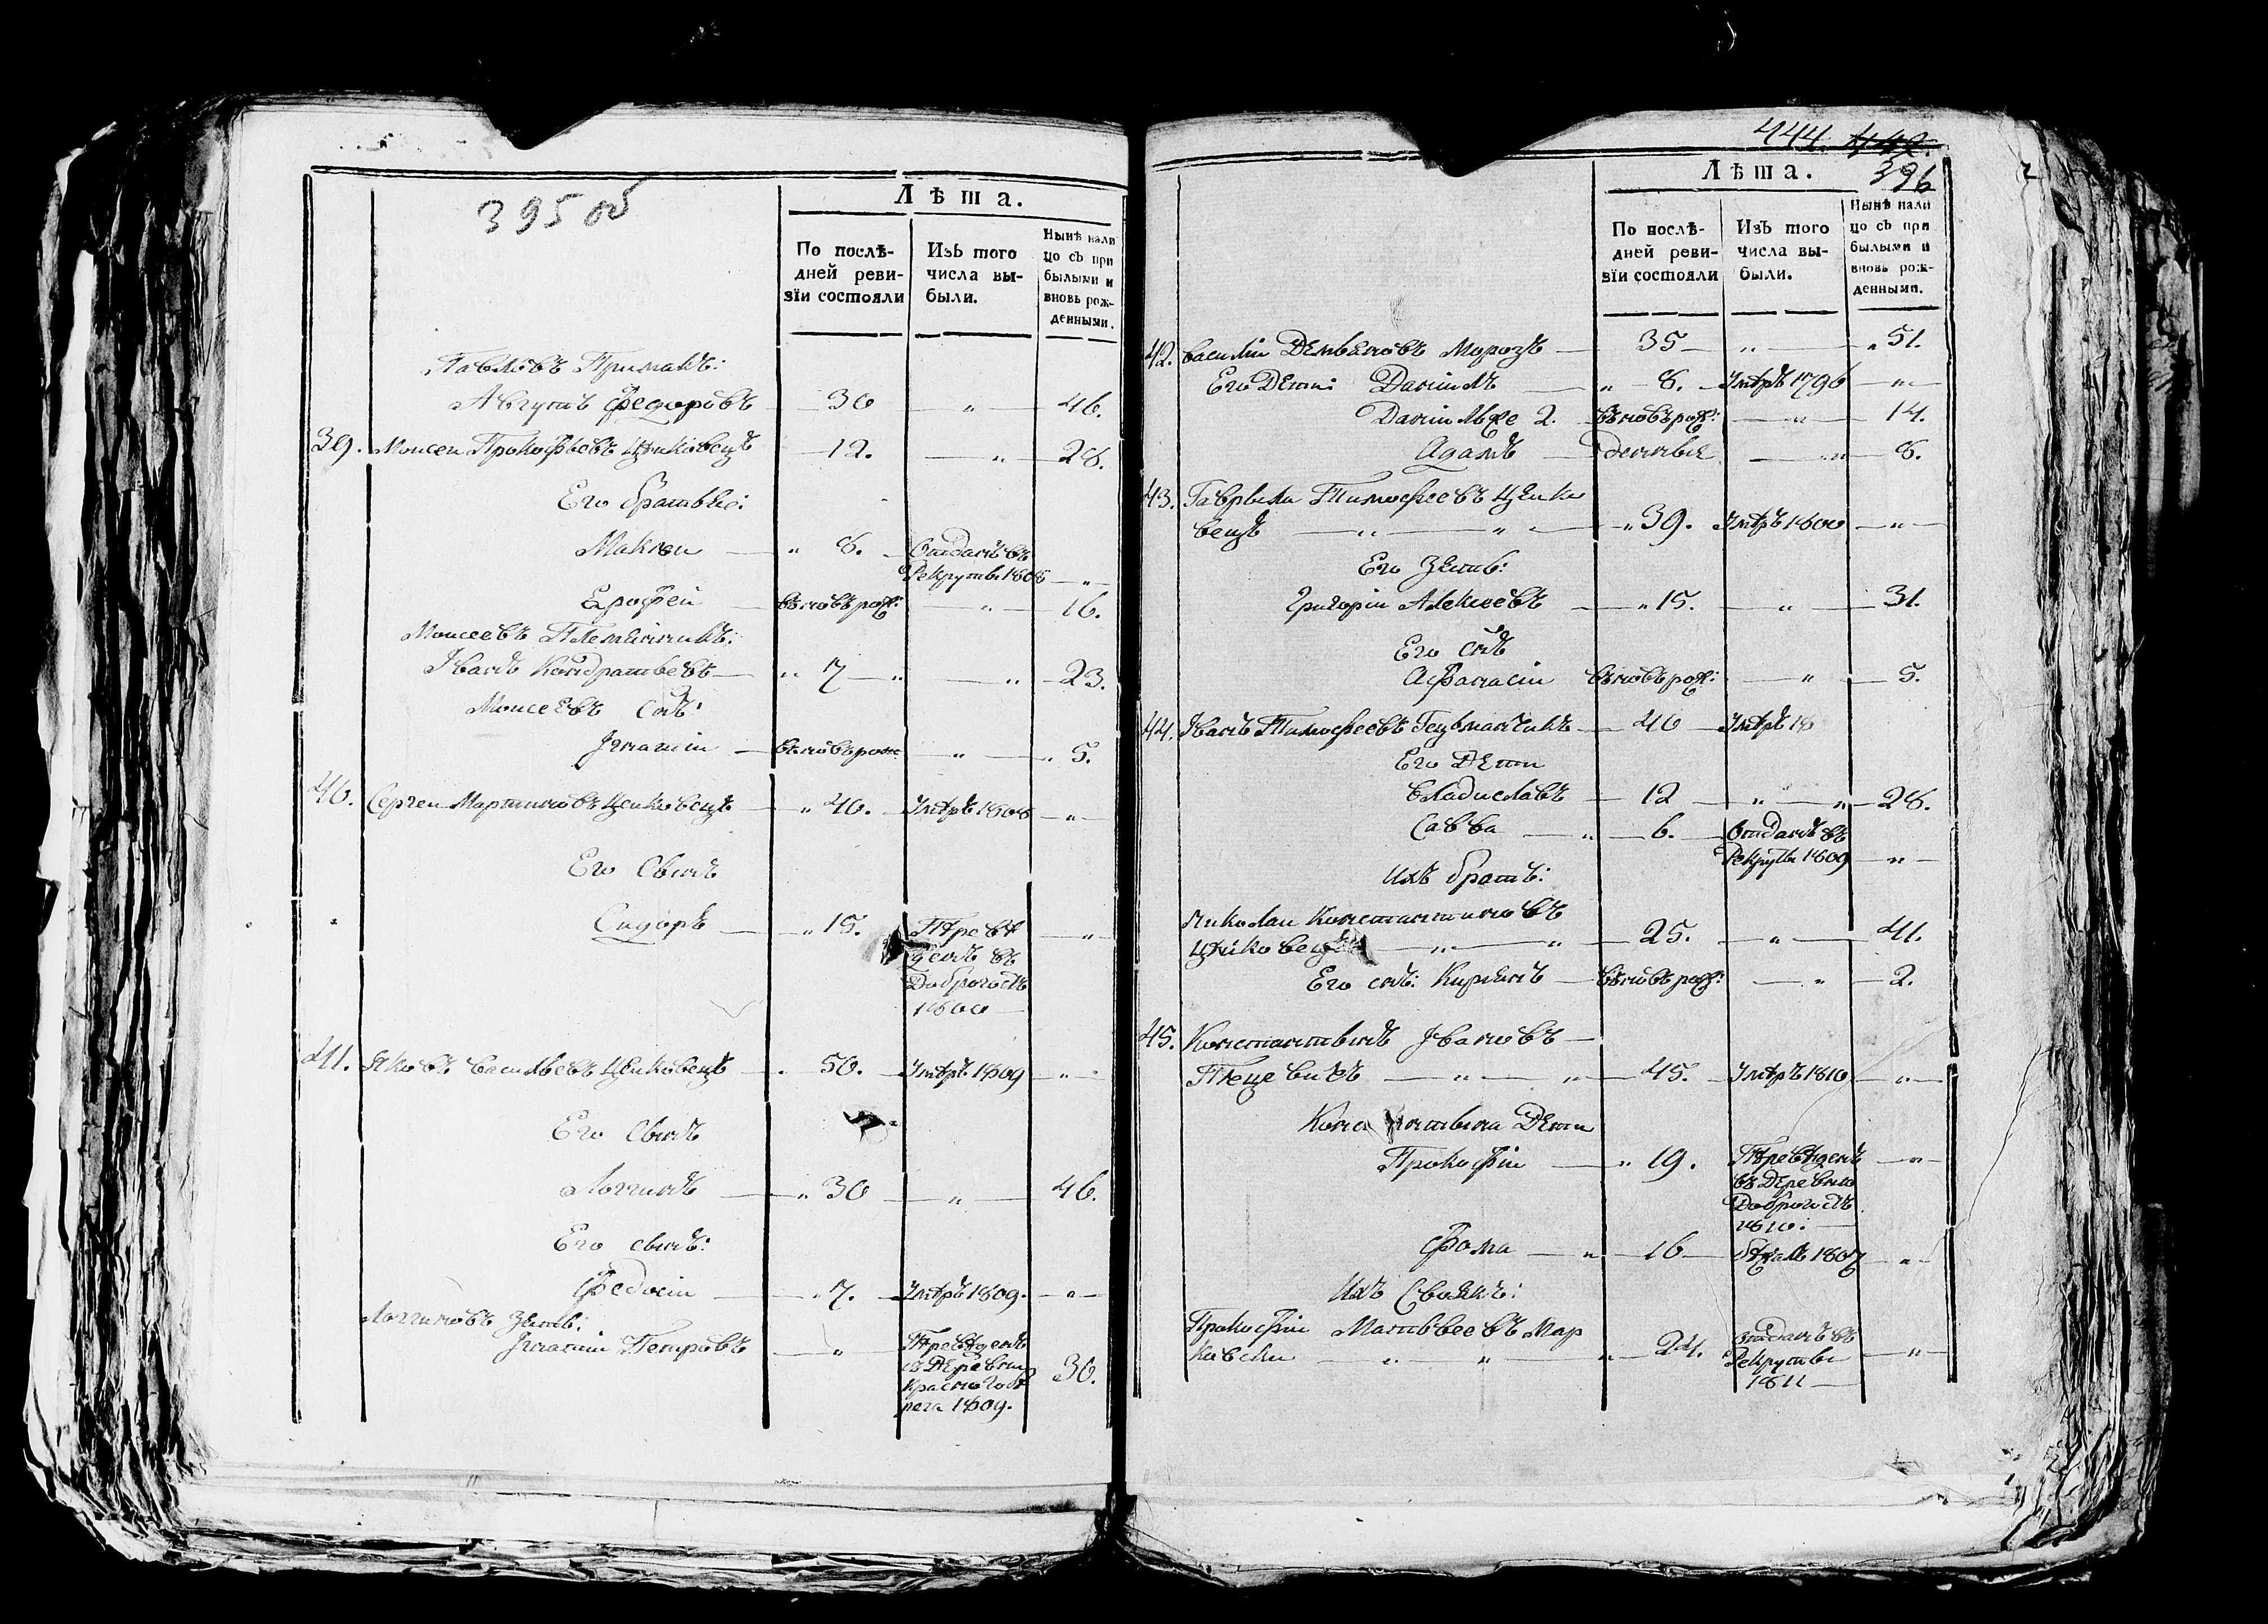 395 об
Лѣта.
По послѣ-
дней реви-
зїи состояли
Изъ того
числа вы-
были.
Нынѣ нали
цо съ при
былыми и
вновь рож-
денными.
Павловъ Примакъ:
Августъ Федоровъ 30 " 46.
39. Моисей Прокофьевъ Цѣйковецъ 12. " 28.
Его братья:
Максей " 8. Отданъ въ
Рекруты 1808 "
Ерофей вновь рож: " 16.
Моисеевъ Племянникъ:
Иванъ Кондратьевъ " 7 " " 23.
Моисеевъ Сынъ:
Игнатій вновь рож: " " 5.
40. Сергей Мартиновъ Цейковецъ " 40. Умръ 1808 "
Его Сынъ
Сидоръ " 15. Переве
денъ въ
Доброгостъ
1800
"
41. Яковъ Васильевъ Цейковецъ 50. Умръ 1809 "
Его Сынъ
Логгинъ " 30 " 46.
Его сынъ:
Федосій " 7. Умръ 1809. "
Логгиновъ Зять:
Игнатій Петровъ " Переведенъ
съ Деревни
Красного бе
рега 1809.
30.
444. 442.
396
Лѣта.
По послѣ-
дней реви-
зїи состояли
Изъ того
числа вы-
были.
Нынѣ нали
цо съ при
былыми и
вновь рож-
денными.
42. Василій Демьяновъ Морозъ 35 " " 51.
Его Дети: Даніилъ " 8. Умръ 1796 "
Даніилъ же 2. вновь рож: " 14.
Адамъ " 8.
43. Гаврыла Тимофеевъ Цейко
вецъ " " " 39. Умръ 1800 "
Его Зять:
Григорій Алексеевъ " 15. " 31.
Его сынъ
Афанасій вновь рож: " 5.
44. Иванъ Тимофеевъ Гецьманчикъ 40 Умръ 18
Его Дети
Владиславъ 12 " " 28.
Савва " 6. Отданъ въ
Рекруты 1809 "
Ихъ братъ:
Николай Константиновъ
Цейковецъ " " 25. " 41.
Его сынъ: Кирьянъ вновь рож: " 2.
45. Константынъ Ивановъ
Пецевичъ " " 45. Умръ 1810 "
Константына Дети
Прокофій " 19. Переведенъ
въ Деревню
Доброгостъ
1810:
"
Фома " 16 бежалъ 1807 "
Ихъ Своякъ:
Прокофій Матвеевъ Мар
ковски " " " 24. Отданъ въ
Рекруты
1811
"